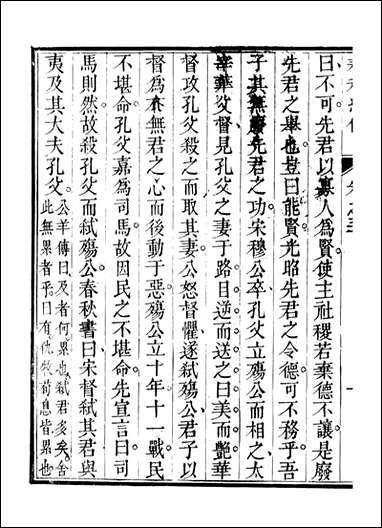 曰不可先君以寡人爲賢使主社稷若棄德不讓是廢
先君之舉也豈曰能賢光昭先君之令德可不務乎吾
子其無廢先君之功宋穆公卒孔父立殤公而相之太
宰華父督見孔父之妻于路目逆而送之曰美而艷華
督攻孔父殺之而取其妻公怒督懼遂弑殤公君子以
督爲有無君之心而後動于惡殤公立十年十一戰民
不堪命孔父嘉爲司馬故因民之不堪命先宣言曰司
馬則然故殺孔父而弑殤公春秋書曰宋督弑其君與
夷及其大夫孔父
公羊傳曰及者何累也弑君多矣舍
此無累者乎曰有仇牧荀息皆累也